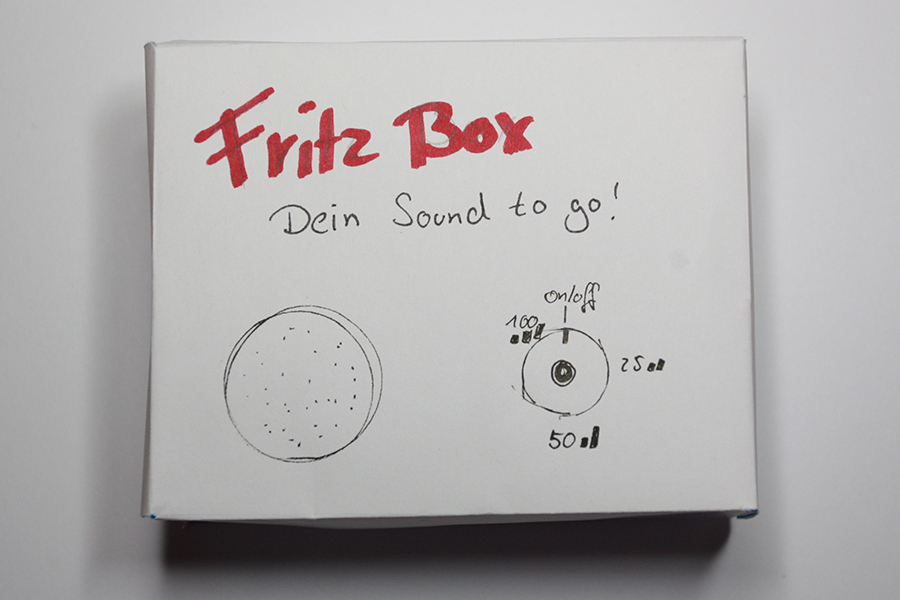 Fritz Box
Dein Sound to go!
on/off
100
25
50